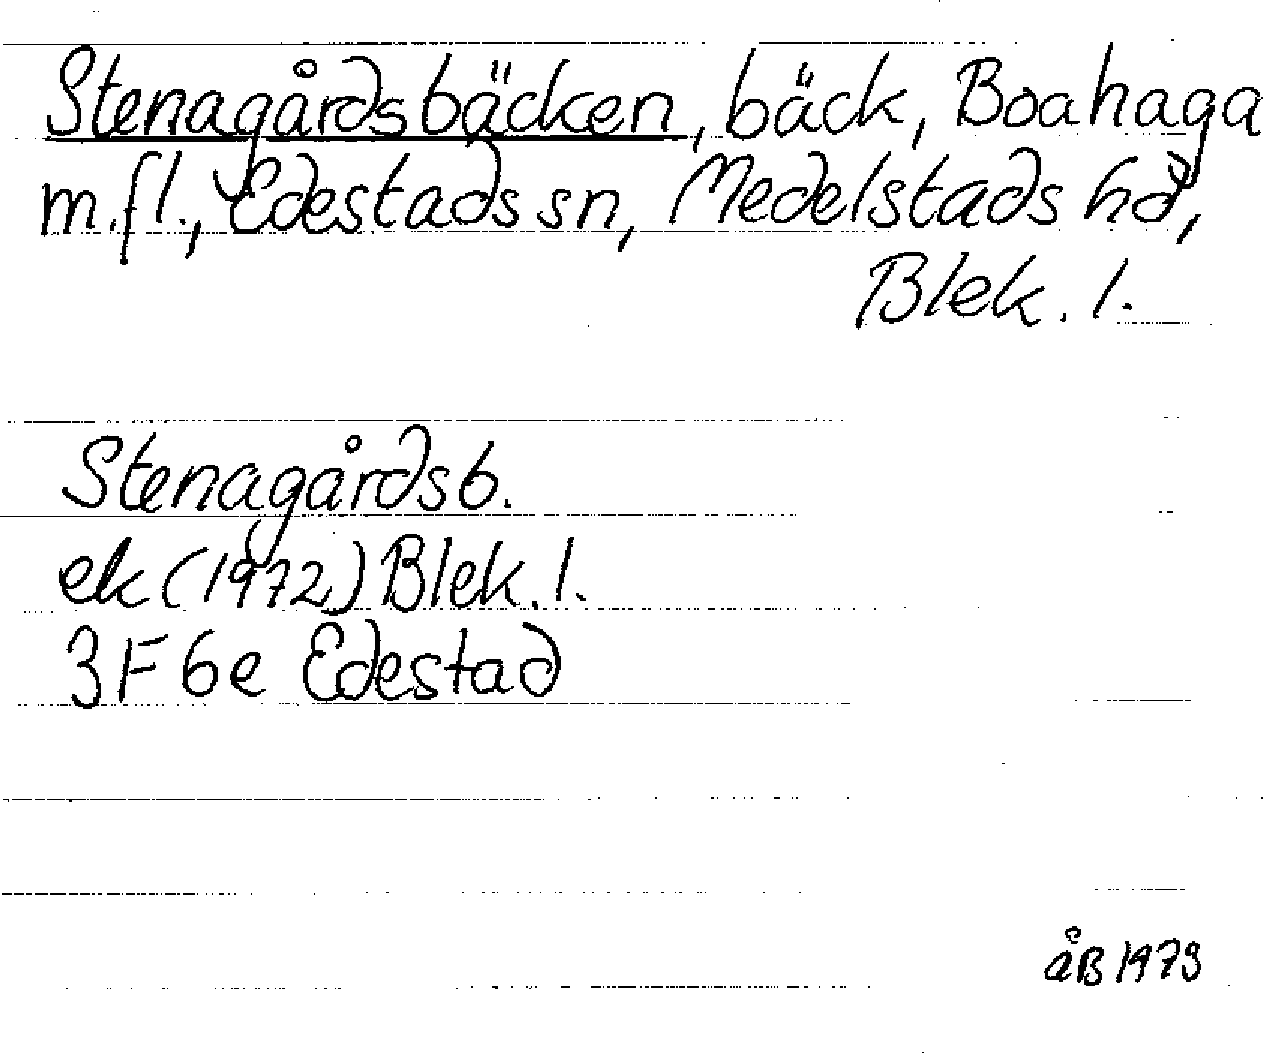 Stenagårdsbäcken, bäck, Boahaga
m.fl., Edestads sn, Medelstads hd,
Blek. l.
Stenagårdsb.
ek (1972) Blek. l.
3F 6e Edestad
åB 1973